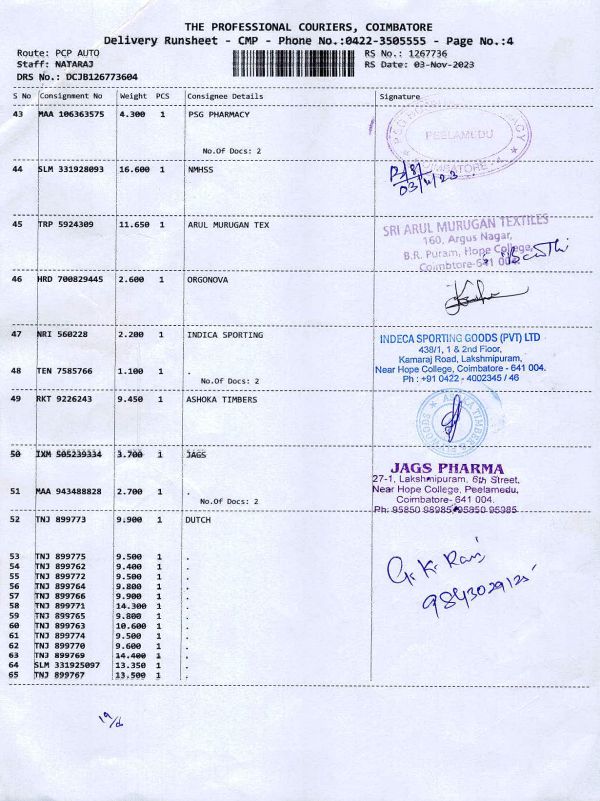 THE PROFESSIONAL COURIERS, COIMBATORE
Delivery Runsheet - CMP - Phone No.:0422-3505555 - Page No.:4
Route: PCP AUTO RS No.: 1267736
Staff: NATARAJ RS Date: 03-Nov-2023
DRS No.: DCJB126773604
S No Consignment No Weight PCS Consignee Details Signature
43 MAA 106363575 4.300 1 PSG PHARMACY
PEELAMEDU
No.Of Docs: 2
44 SLM 331928093 16.600 1 NMHSS
03/11/23
45 TRP 5924309 11.650 1 ARUL MURUGAN TEX
SRI ARUL MURUGAN TEXTILES
160, Argus Nagar,
B.R. Puram, Hope College,
Coimbtore-641 004.
46 HRD 700829445 2.600 1 ORGONOVA
47 NRI 560228 2.200 1 INDICA SPORTING
INDECA SPORTING GOODS (PVT) LTD
438/1, 1 & 2nd Floor,
Kamaraj Road, Lakshmipuram,
Near Hope College, Coimbatore - 641 004.
Ph : +91 0422 - 4002345 / 46
48 TEN 7585766 1.100 1 .
No.Of Docs: 2
49 RKT 9226243 9.450 1 ASHOKA TIMBERS
50 IXM 505239334 3.700 1 JAGS
JAGS PHARMA
27-1, Lakshmipuram, 6th Street,
Near Hope College, Peelamedu,
Coimbatore- 641 004.
Ph: 95850 98985, 95850 95985
51 MAA 943488828 2.700 1 .
No.Of Docs: 2
52 TNJ 899773 9.900 1 DUTCH
G. K. Raj
9843029125
53 TNJ 899775 9.500 1 .
54 TNJ 899762 9.400 1 .
55 TNJ 899772 9.500 1 .
56 TNJ 899764 9.800 1 .
57 TNJ 899766 9.900 1 .
58 TNJ 899771 14.300 1 .
59 TNJ 899765 9.800 1 .
60 TNJ 899763 10.600 1 .
61 TNJ 899774 9.500 1 .
62 TNJ 899770 9.600 1 .
63 TNJ 899769 14.400 1 .
64 SLM 331925097 13.350 1 .
65 TNJ 899767 13.500 1 .